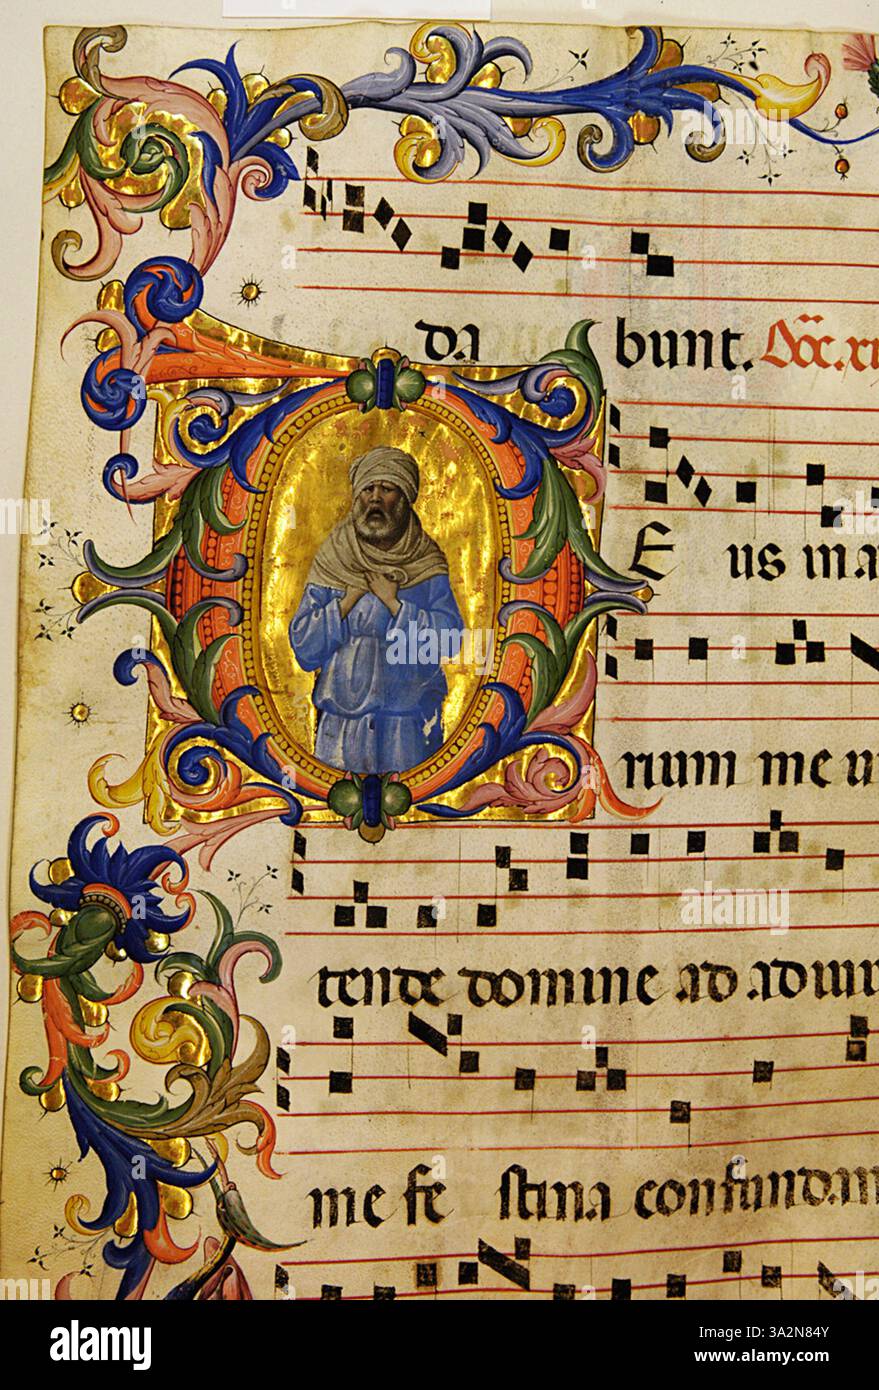 da bunt. Dōc. xi
E us in a
rium me u
tende domine ad adiuu
me fe stina confundan
alamy
Image ID: 3A2N84Y
www.alamy.com